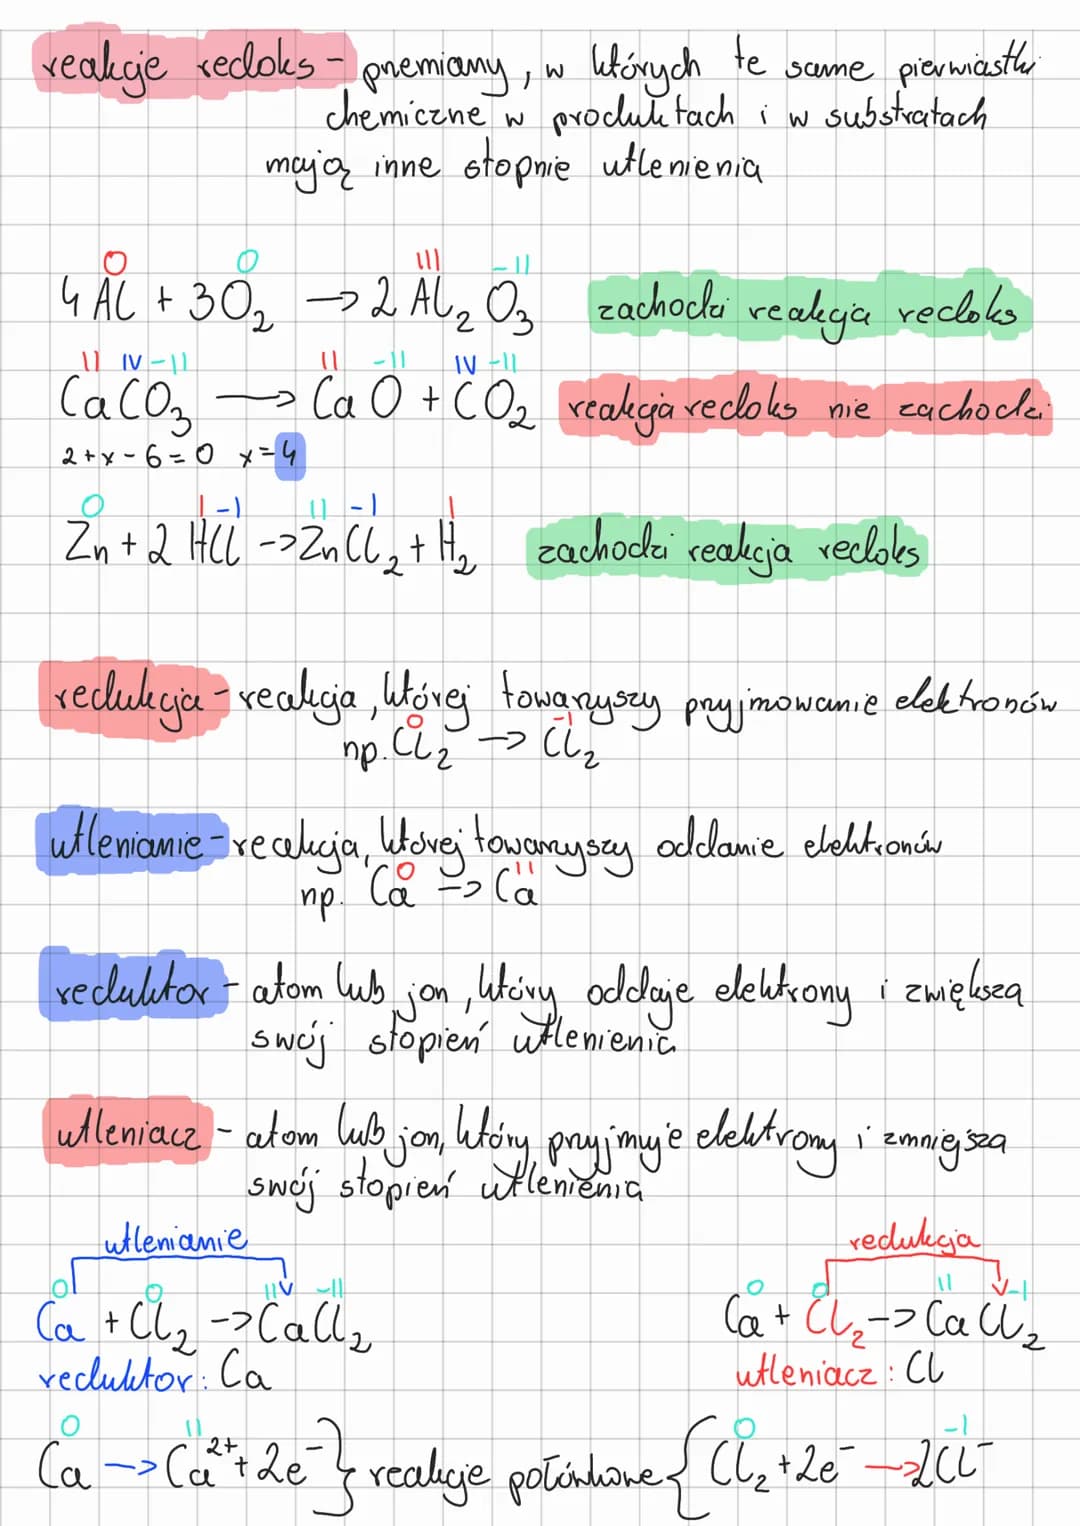 reakcje redoks - przemiany, w których te same pierwiastki
chemiczne w produktach i w substratach
mają inne stopnie utlenienia
0 0 III -II
4 Al + 3O₂ → 2 Al₂O₃ zachodzi reakcja redoks
II IV -II II -II IV -II
CaCO₃ → CaO + CO₂ reakcja redoks nie zachodzi
2+x-6=0 x=4
0 I -I II -I I
Zn + 2 HCl -> ZnCl₂ + H₂ zachodzi reakcja redoks
redukcja - reakcja, której towarzyszy przyjmowanie elektronów
0 -I
np. Cl₂ -> Cl₂
utlenianie - reakcja, której towarzyszy oddanie elektronów
0 II
np. Ca -> Ca
reduktor - atom lub jon, który oddaje elektrony i zwiększa
swój stopień utlenienia
utleniacz - atom lub jon, który przyjmuje elektrony i zmniejsza
swój stopień utlenienia
utlenianie redukcja
0 0 II -II 0 0 II -I
Ca + Cl₂ -> CaCl₂ Ca + Cl₂ -> CaCl₂
reduktor: Ca utleniacz: Cl
0 II 0 -I
Ca -> Ca²⁺ + 2e⁻ } reakcje połówkowe { Cl₂ + 2e⁻ -> 2Cl⁻